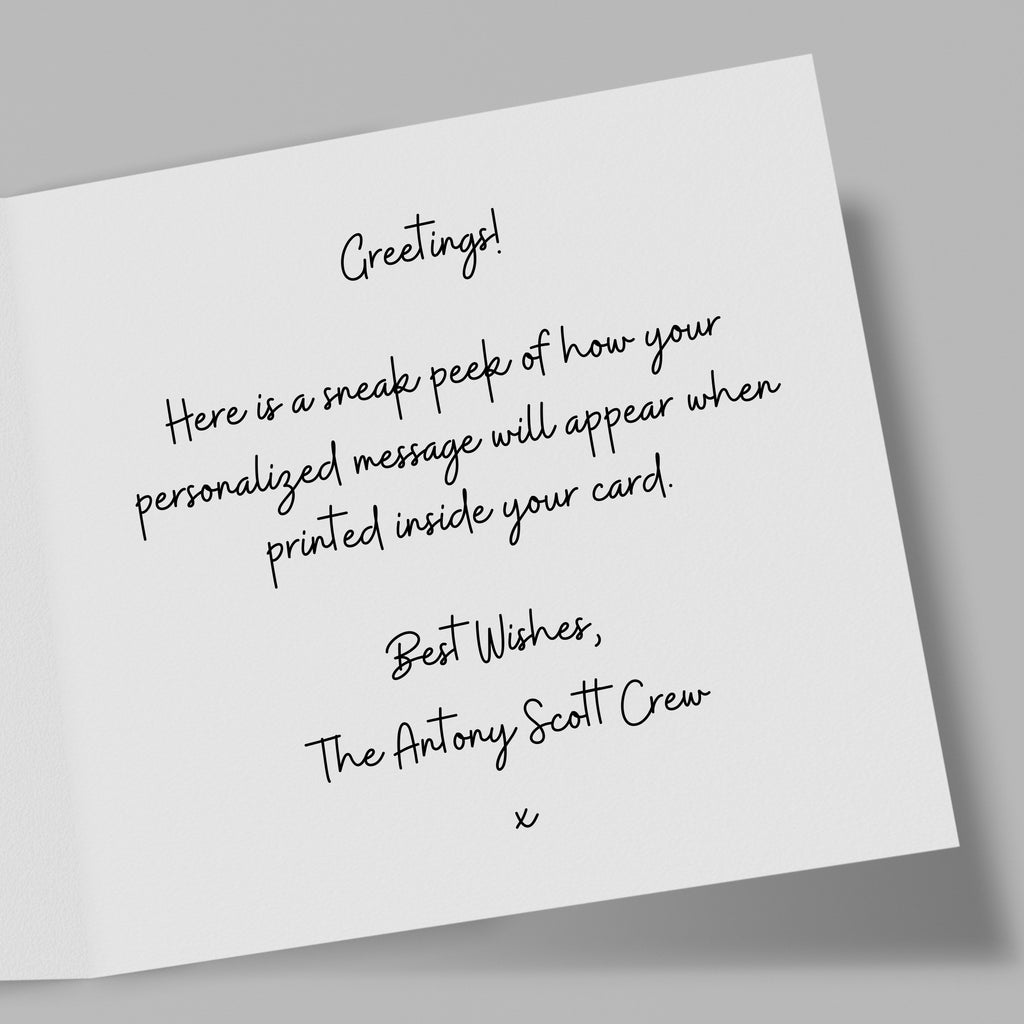 Greetings!
Here is a sneak peek of how your
personalized message will appear when
printed inside your card.
Best Wishes,
The Antony Scott Crew
x